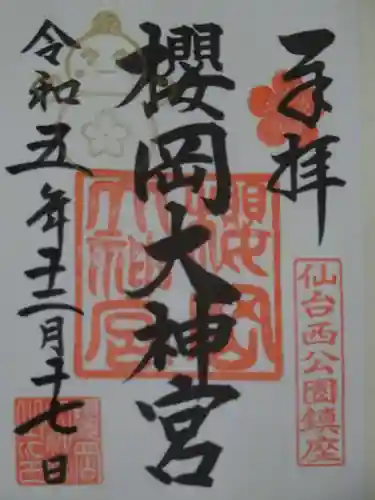 奉拝
櫻岡大神宮
令和五年十二月二十七日
仙台西公園鎮座
櫻岡大神宮